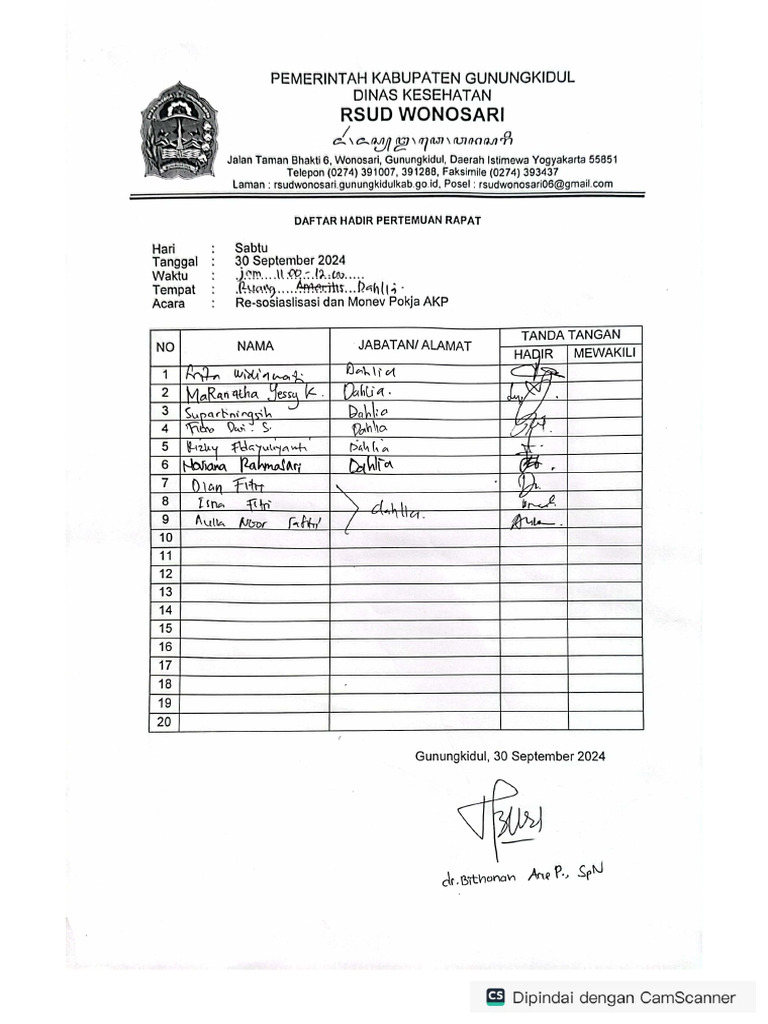 PEMERINTAH KABUPATEN GUNUNGKIDUL
DINAS KESEHATAN
RSUD WONOSARI
Jalan Taman Bhakti 6, Wonosari, Gunungkidul, Daerah Istimewa Yogyakarta 55851
Telepon (0274) 391007, 391288, Faksimile (0274) 393437
Laman : rsudwonosari.gunungkidulkab.go.id, Posel : rsudwonosari06@gmail.com
DAFTAR HADIR PERTEMUAN RAPAT
Hari : Sabtu
Tanggal : 30 September 2024
Waktu : jam 11.00-12.00
Tempat : Ruang Dahlia
Acara : Re-sosiaslisasi dan Monev Pokja AKP
NO NAMA JABATAN/ ALAMAT TANDA TANGAN
HADIR MEWAKILI
1 Dahlia
2 MaRanatha Yessy K. Dahlia.
3 Supartiningsih Dahlia
4 Dwi. S. Dahlia
5 Rizky Dahlia
6 Noviana Rahmasari Dahlia
7 Dian Fitri
8 Isna Fitri dahlia.
9 Aulia Noor Safitri
10
11
12
13
14
15
16
17
18
19
20
Gunungkidul, 30 September 2024
dr. Bithanan Ane P., SpN
CS Dipindai dengan CamScanner